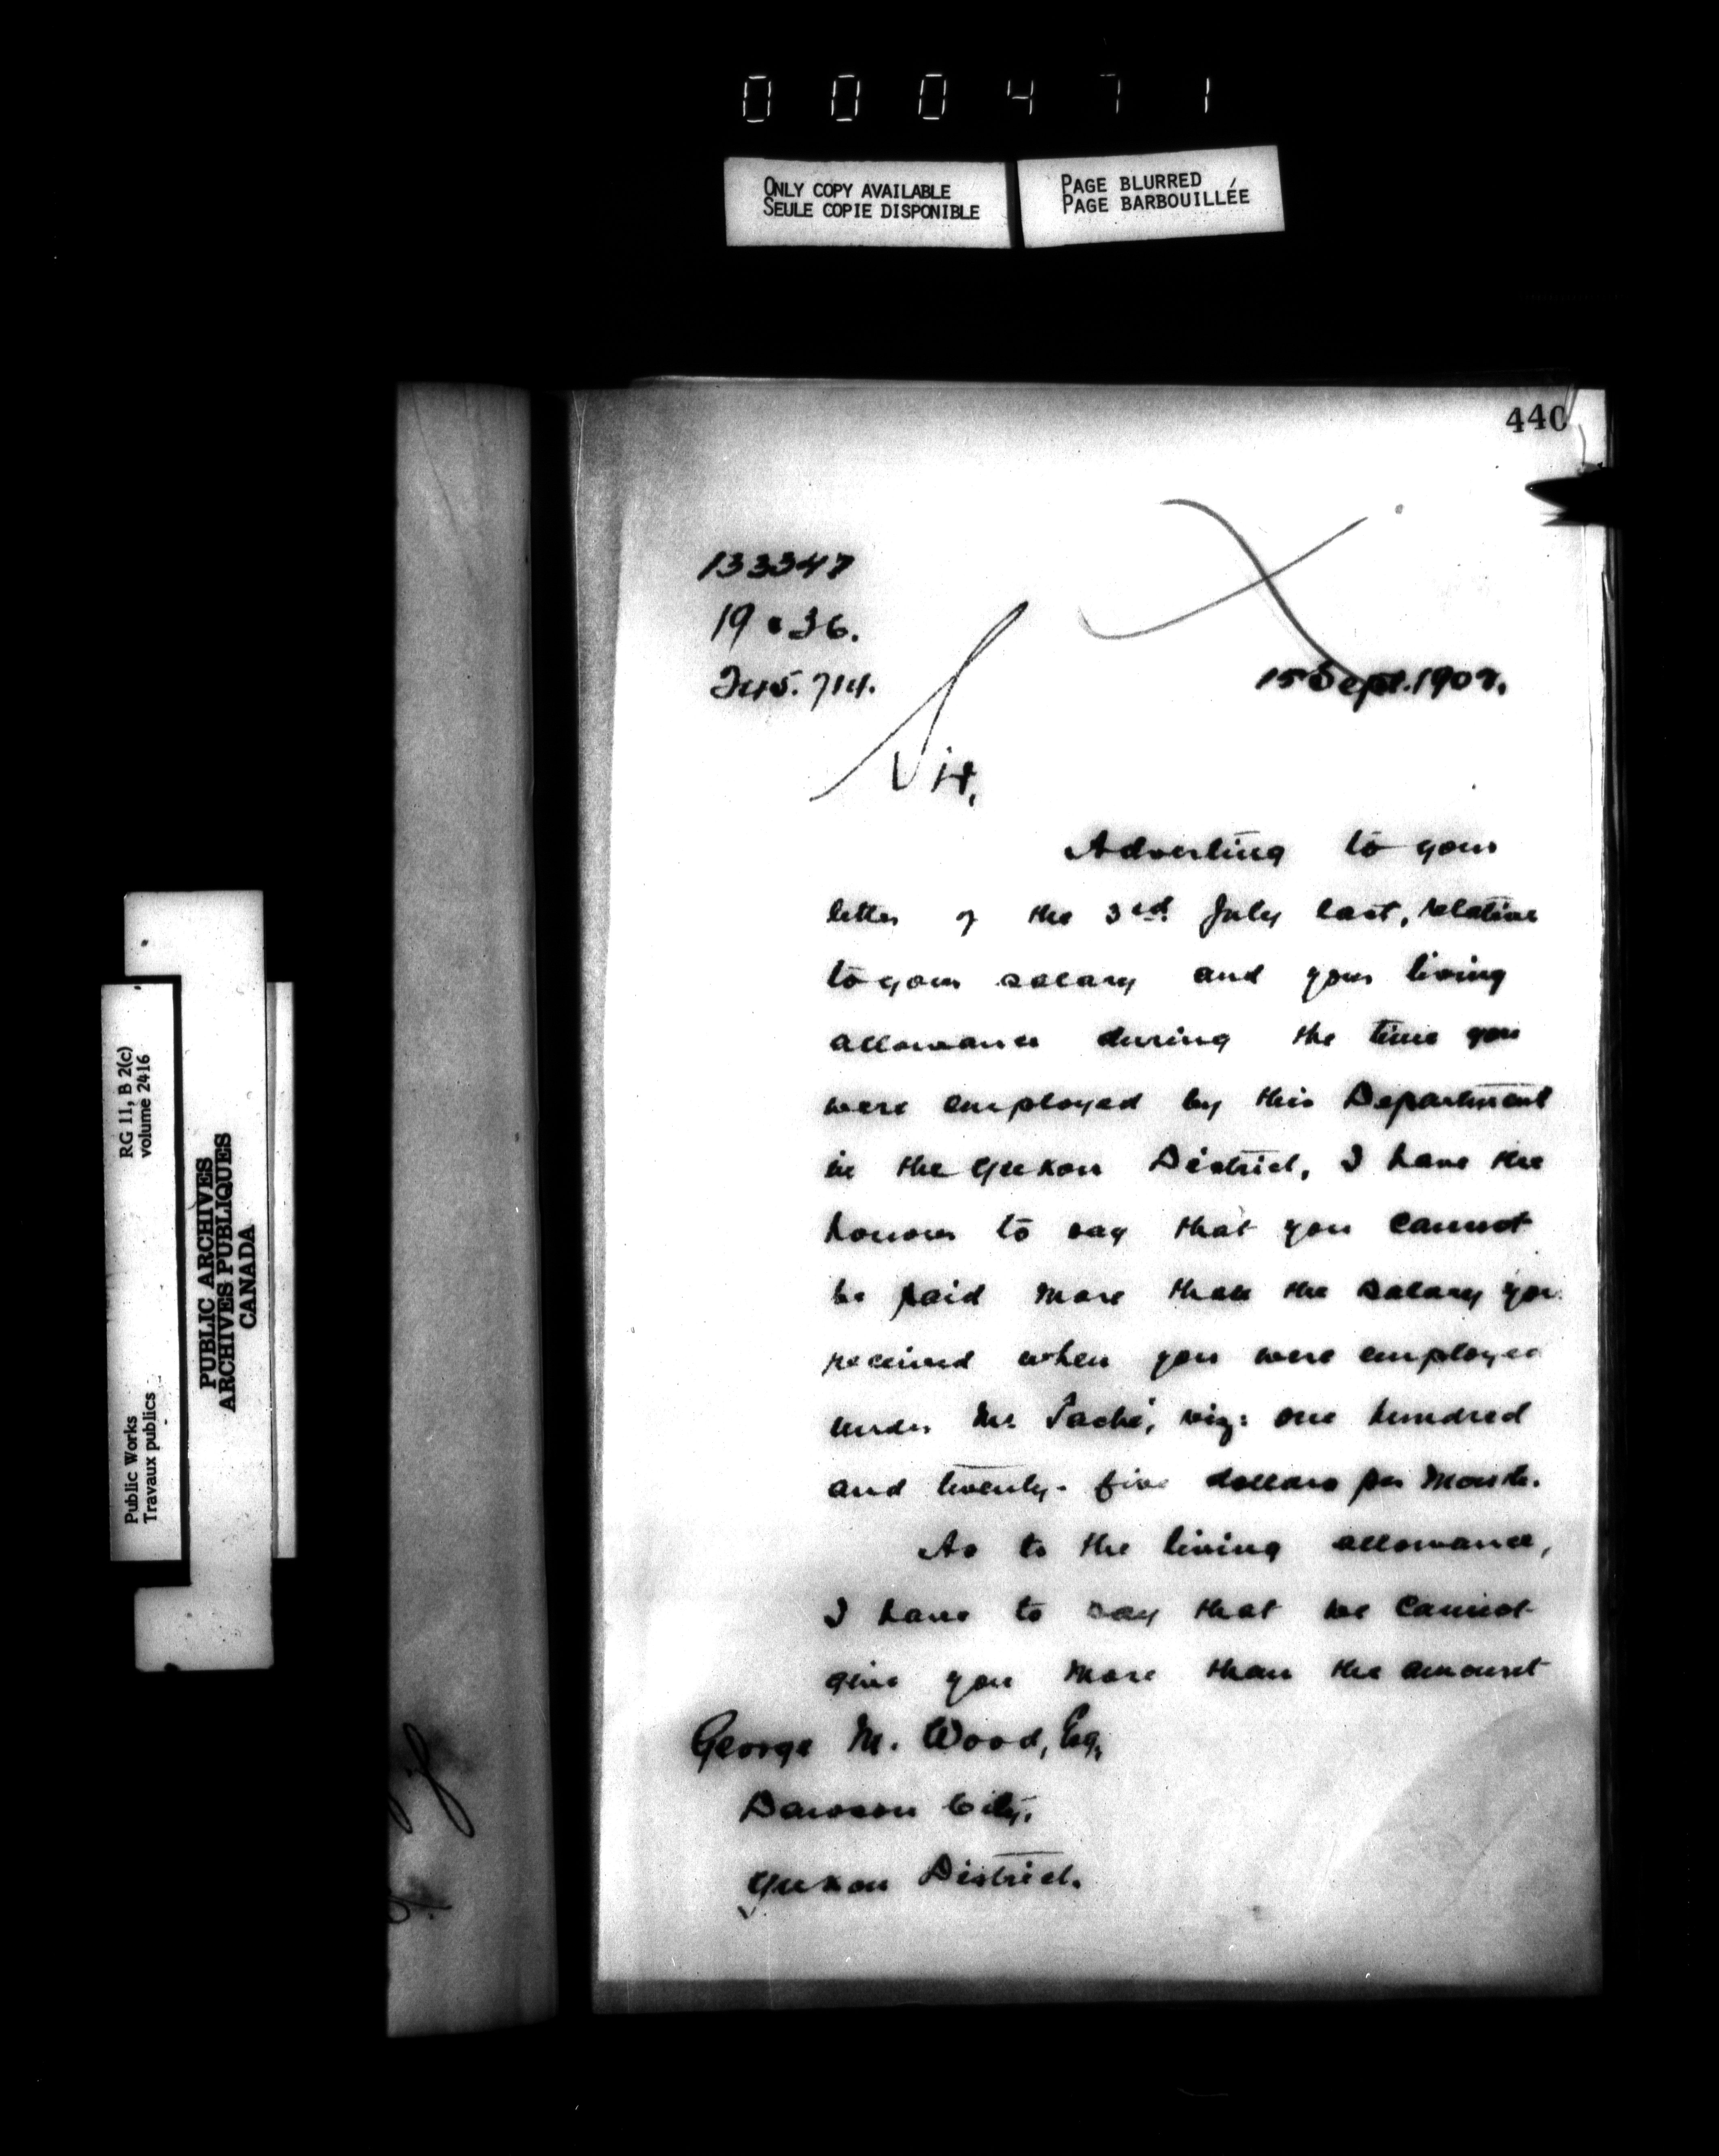 000471
ONLY COPY AVAILABLE
SEULE COPIE DISPONIBLE
PAGE BLURRED
PAGE BARBOUILLÉE
440
133347
19 36.
245.714.
15 Sept. 190
Sir,
Adverting to your
letter of the 3rd July last, relative
to your salary and your living
allowance during the time you
were employed by this Department
in the Yukon District, I have the
honour to say that you cannot
be paid more than the salary you
received when you were employed
under Mr. Taché, viz: one hundred
and twenty-five dollars per month.
As to the living allowance,
I have to say that we cannot
give you more than the amount
George M. Wood, Esq,
Dawson City,
Yukon District.
RG 11, B 2(c)
volume 2416
Public Works
Travaux publics
PUBLIC ARCHIVES
ARCHIVES PUBLIQUES
CANADA